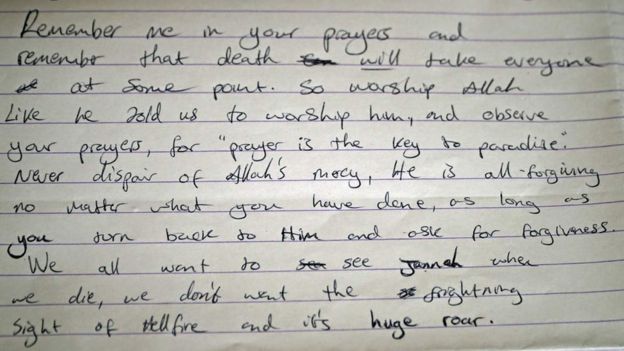 Remember me in your prayers and
remember that death will take everyone
at some point. So worship Allah
Like he told us to worship him, and observe
your prayers, for "prayer is the key to paradise".
Never dispair of Allah's mercy, He is all-forgiving
no matter what you have done, as long as
you turn back to Him and ask for forgiveness.
We all want to see Jannah when
we die, we don't want the frightning
sight of Hellfire and it's huge roar.